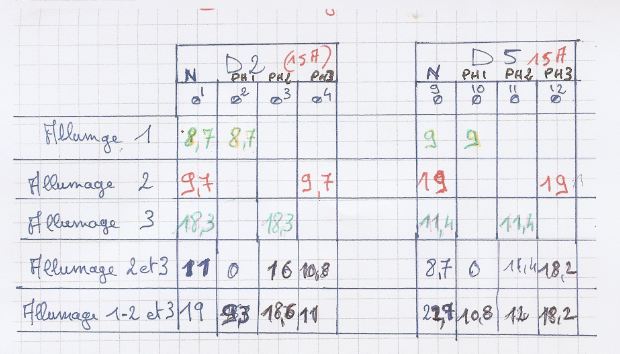 D2 (15A) D5 15A
N PH1 PH2 PH3 N PH1 PH2 PH3
1 2 3 4 9 10 11 12
Allumge 1 8,7 8,7 9 9
Allumage 2 9,7 9,7 19 19
Allumage 3 18,3 18,3 11,4 11,4
Allumage 2 et 3 11 0 16 10,8 8,7 0 11,4 18,2
Allumage 1-2 et 3 19 18,6 11 10,8 12 18,2